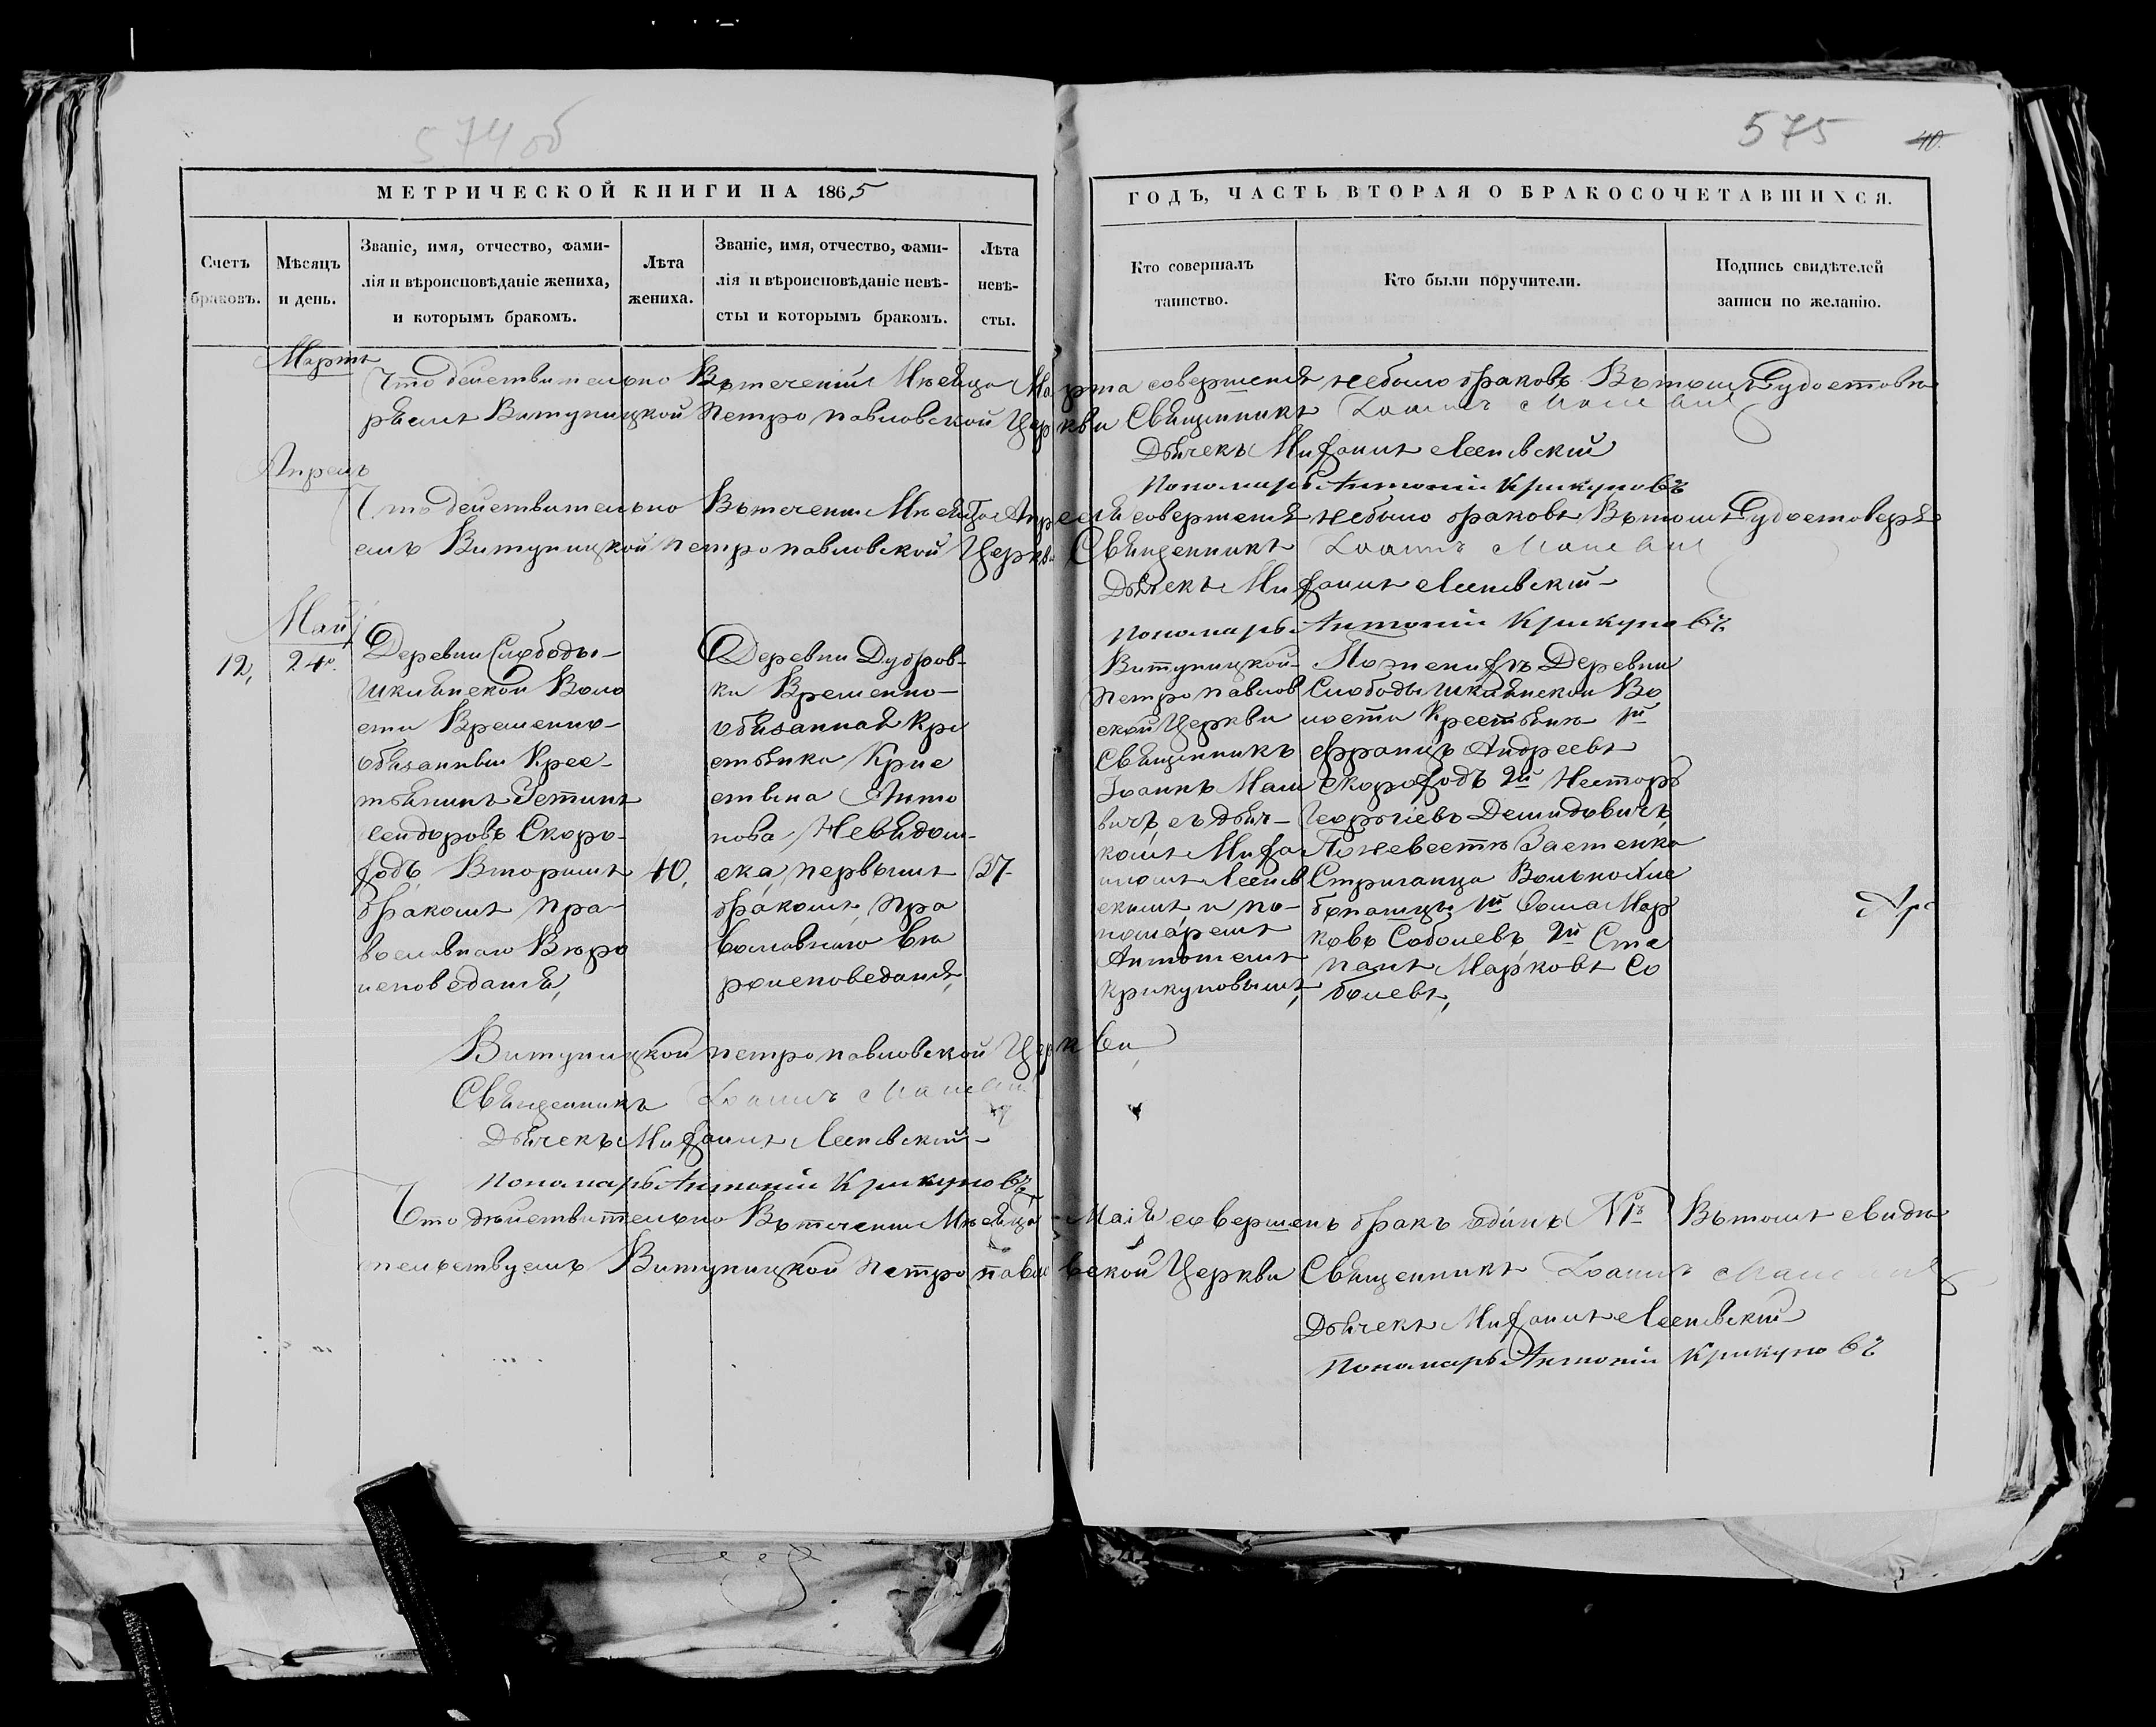 574 об
575
40.
МЕТРИЧЕСКОЙ КНИГИ НА 1865
ГОДЪ, ЧАСТЬ ВТОРАЯ О БРАКОСОЧЕТАВШИХСЯ.
Счетъ
браковъ.
Мѣсяцъ
и день.
Званіе, имя, отчество, фами-
лія и вѣроисповѣданіе жениха,
и которымъ бракомъ.
Лѣта
жениха.
Званіе, имя, отчество, фами-
лія и вѣроисповѣданіе невѣ-
сты и которымъ бракомъ.
Лѣта
невѣ-
сты.
Кто совершалъ
таинство.
Кто были поручители.
Подпись свидѣтелей
записи по желанію.
Мартъ
Что действительно Въ теченіи Мѣсяца Марта совершенія небыло браковъ Въ томъ Удостовѣ
ряемъ Витуницкой Петропавловской Церкви Священникъ Іоаннъ
Дьячекъ Мифаилъ Лепевскій
Пономарь Антоній Крикуновъ
Апрель
Что действительно Въ теченіи Мѣсяца Апреля совершенія небыло браковъ Въ томъ Удостоверя
емъ Витуницкой Петропавловской Церкви Священникъ Іоаннъ
Дьячекъ Мифаилъ Лепевскій
Пономарь Антоній Крикуновъ
Май
12,
24го.
Деревни Слободы-
Шклянской Воло
сти Временно-
обязанный Крес-
тьянинъ Устинъ
Сидоровъ Скоро-
фодъ, Вторымъ
бракомъ, Пра-
вославнаго Вѣро
исповеданія,
40,
Деревни Дубров-
ки Временно-
обязанная Кре
стьянка Крис
тина Анто
нова Невядом-
ска, первымъ
бракомъ, Пра
вославнаго Вѣ
роисповеданія,
37-
Витуницкой-
Петропавлов
ской Церкви
Священникъ
Іоаннъ Маш
вичъ, съ дьяч-
комъ Мифа
иломъ Лепев
скимъ, и по-
номаремъ
Антоніемъ
Крикуновымъ,
По женихѣ Деревни
Слободы Шклянской Во
лости Крестьяне 1й
Францъ Андреевъ
Скорофодъ 2й Несторъ
Георгіевъ Демидовичъ,
По невестѣ Застенка
Стриганца Вольно
1й Сома Мар
ковъ Соболевъ, 2й Сте
панъ Марковъ Со
болевъ,
Витуницкой Петропавловской Церкви,
Священникъ Іоаннъ
Дьячекъ Мифаилъ Лепевскій-
Пономарь Антоній Крикуновъ
Что дѣйствительно Въ теченіи Мѣсяца Маія совершенъ бракъ одинъ №1й Въ томъ свидѣ
тельствуемъ Витуницкой Петропавловской Церкви Священникъ Іоаннъ
Дьячекъ Мифаилъ Лепевскій
Пономарь Антоній Крикуновъ